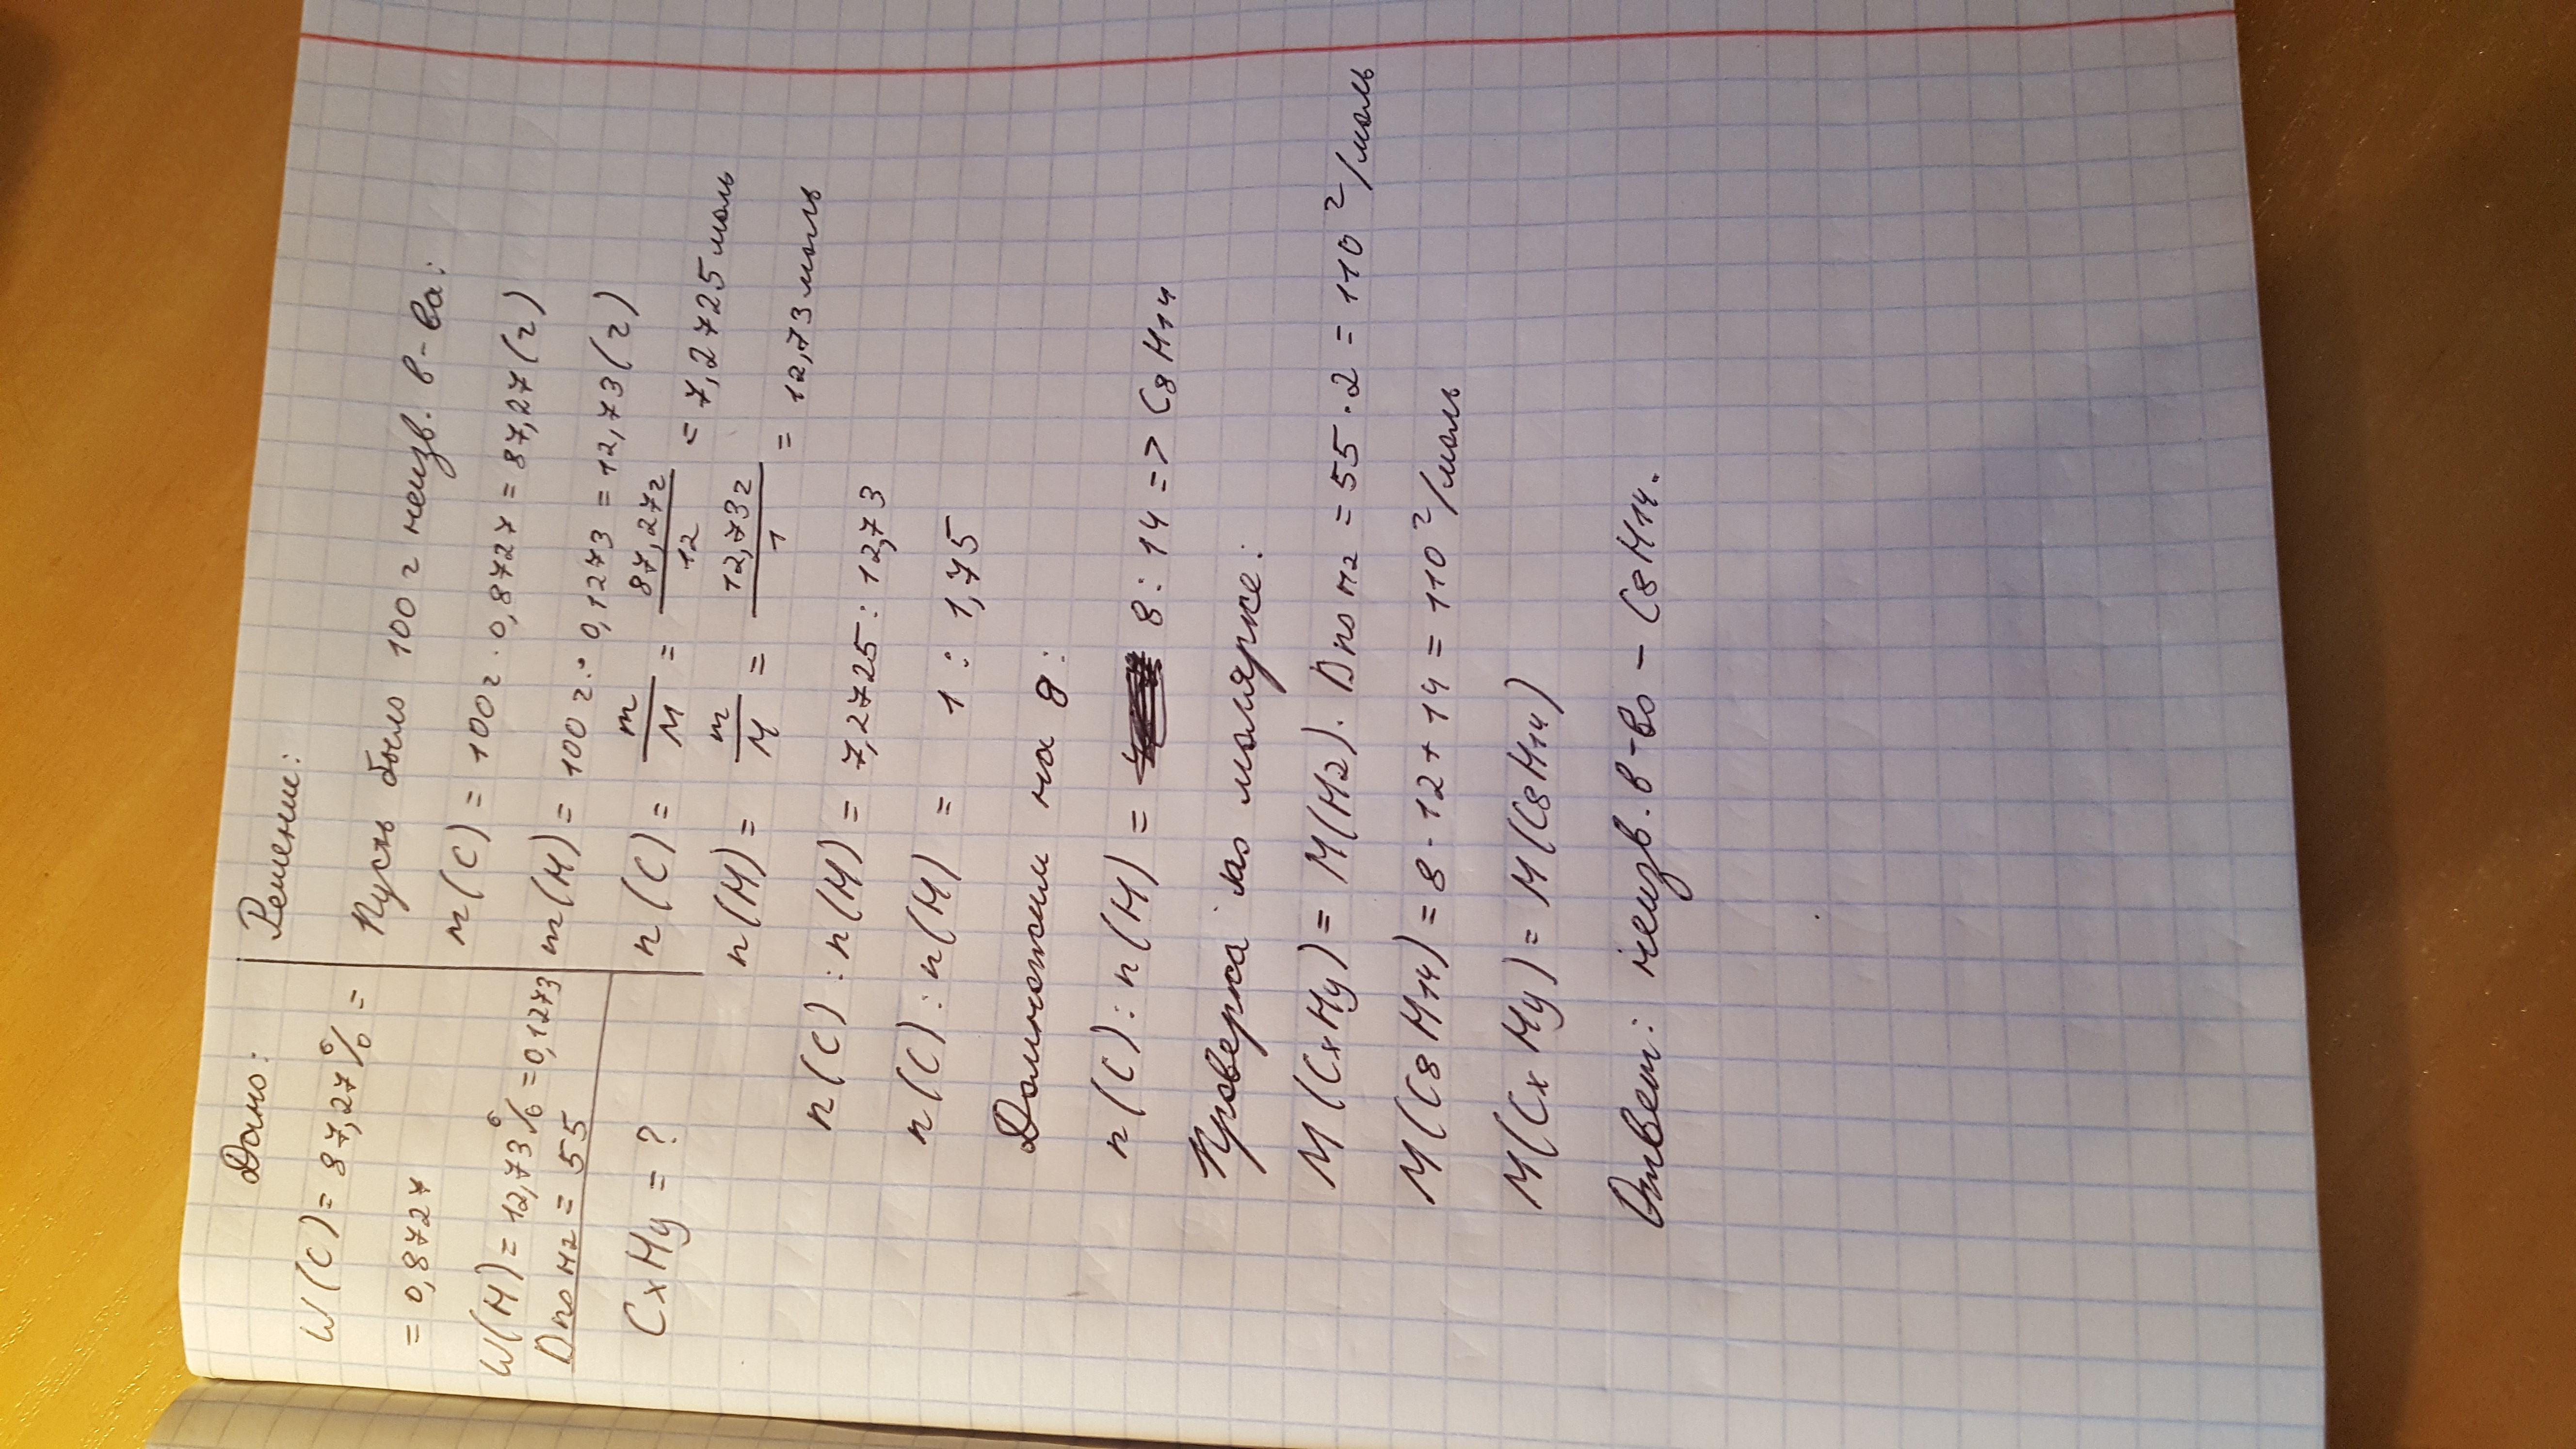 Дано:
W(C) = 87,27% =
= 0,8727
W(H) = 12,73% = 0,1273
D по H2 = 55
CxHy = ?
Решение:
Пусть было 100 г неизв. в-ва:
m(C) = 100 г · 0,8727 = 87,27 (г)
m(H) = 100 г · 0,1273 = 12,73 (г)
n(C) = m/M = 87,27г/12 = 7,2725 моль
n(H) = m/M = 12,73г/1 = 12,73 моль
n(C) : n(H) = 7,2725 : 12,73
n(C) : n(H) = 1 : 1,75
Домножим на 8:
n(C) : n(H) = 8 : 14 => C8H14
Проверка по молярке:
M(CxHy) = M(H2) · D по H2 = 55 · 2 = 110 г/моль
M(C8H14) = 8 · 12 + 14 = 110 г/моль
M(CxHy) = M(C8H14)
Ответ: неизв. в-во – C8H14.